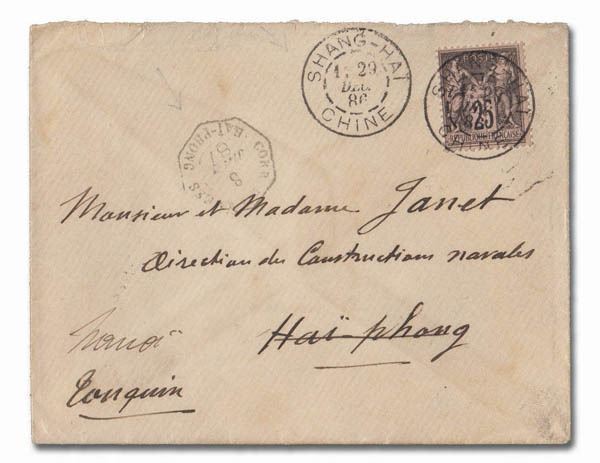 SHANG-HAÏ
29
DEC.
86
CHINE
POSTES
25
REPUBLIQUE FRANÇAISE
CORR.
HAÏ-PHONG
Monsieur et Madame Janet
Direction des Constructions navales
Haï-phong
hanoï
Tonquin